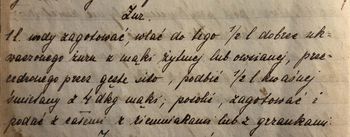 Żur.
1 l. wody zagotować, wlać do tego 1/2 l dobrze uk-
waszonego żuru z mąki żytniej lub owsianej, prze-
cedzonego przez gęste sito, podbić 1/2 l kwaśnej
śmietany z 4 dkg mąki, posolić, zagotować i
podać z ziemniakami lub z grzankami.